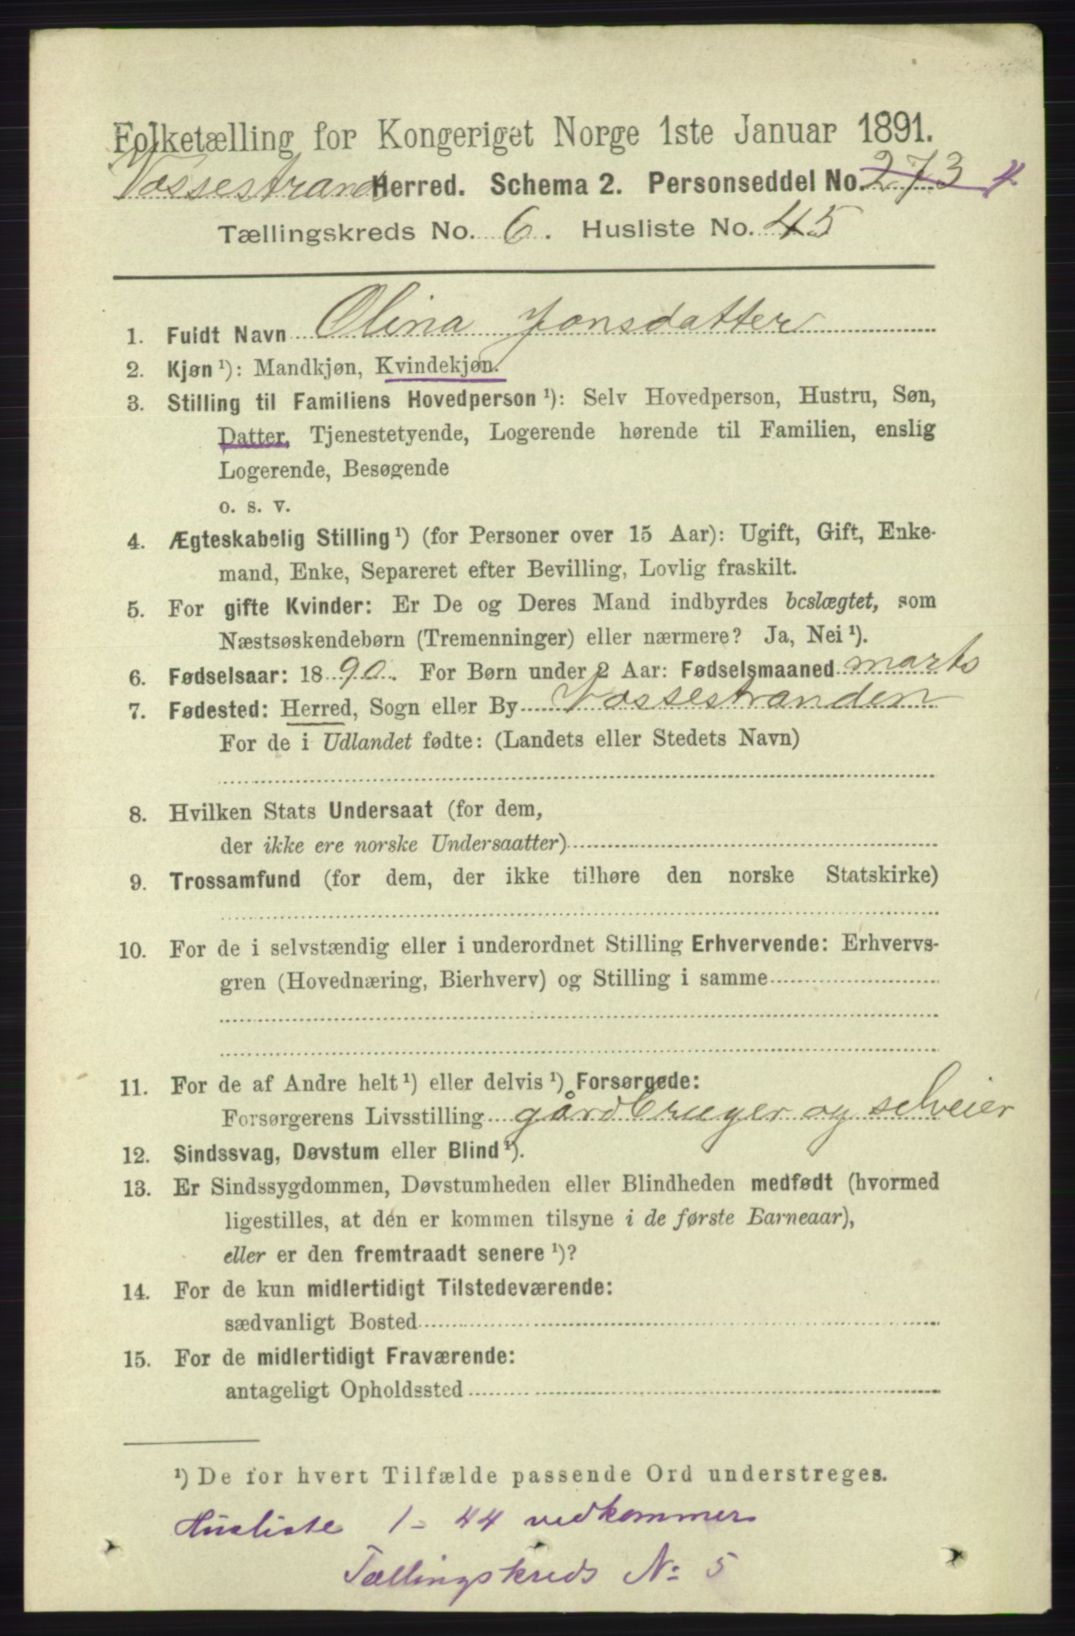 Folketælling for Kongeriget Norge 1ste Januar 1891.
Vossestrand Herred. Schema 2. Personseddel No. 273 4
Tællingskreds No. 6. Husliste No. 45
1. Fuldt Navn Olina Jonsdatter
2. Kjøn ¹): Mandkjøn, Kvindekjøn.
3. Stilling til Familiens Hovedperson ¹): Selv Hovedperson, Hustru, Søn,
Datter, Tjenestetyende, Logerende hørende til Familien, enslig
Logerende, Besøgende
o. s. v.
4. Ægteskabelig Stilling ¹) (for Personer over 15 Aar): Ugift, Gift, Enke-
mand, Enke, Separeret efter Bevilling, Lovlig fraskilt.
5. For gifte Kvinder: Er De og Deres Mand indbyrdes beslægtet, som
Næstsøskendebørn (Tremenninger) eller nærmere? Ja, Nei ¹).
6. Fødselsaar: 1890. For Børn under 2 Aar: Fødselsmaaned marts
7. Fødested: Herred, Sogn eller By Vossestranden
For de i Udlandet fødte: (Landets eller Stedets Navn)
8. Hvilken Stats Undersaat (for dem,
der ikke ere norske Undersaatter)
9. Trossamfund (for dem, der ikke tilhøre den norske Statskirke)
10. For de i selvstændig eller i underordnet Stilling Erhvervende: Erhvervs-
gren (Hovednæring, Bierhverv) og Stilling i samme
11. For de af Andre helt ¹) eller delvis ¹) Forsørgede:
Forsørgerens Livsstilling gårdbruger og selveier
12. Sindssvag, Døvstum eller Blind ¹).
13. Er Sindssygdommen, Døvstumheden eller Blindheden medfødt (hvormed
ligestilles, at den er kommen tilsyne i de første Barneaar),
eller er den fremtraadt senere ¹)?
14. For de kun midlertidigt Tilstedeværende:
sædvanligt Bosted
15. For de midlertidigt Fraværende:
antageligt Opholdssted
¹) De for hvert Tilfælde passende Ord understreges.
Husliste 1-44 vedkommer
Tællingskreds No 5